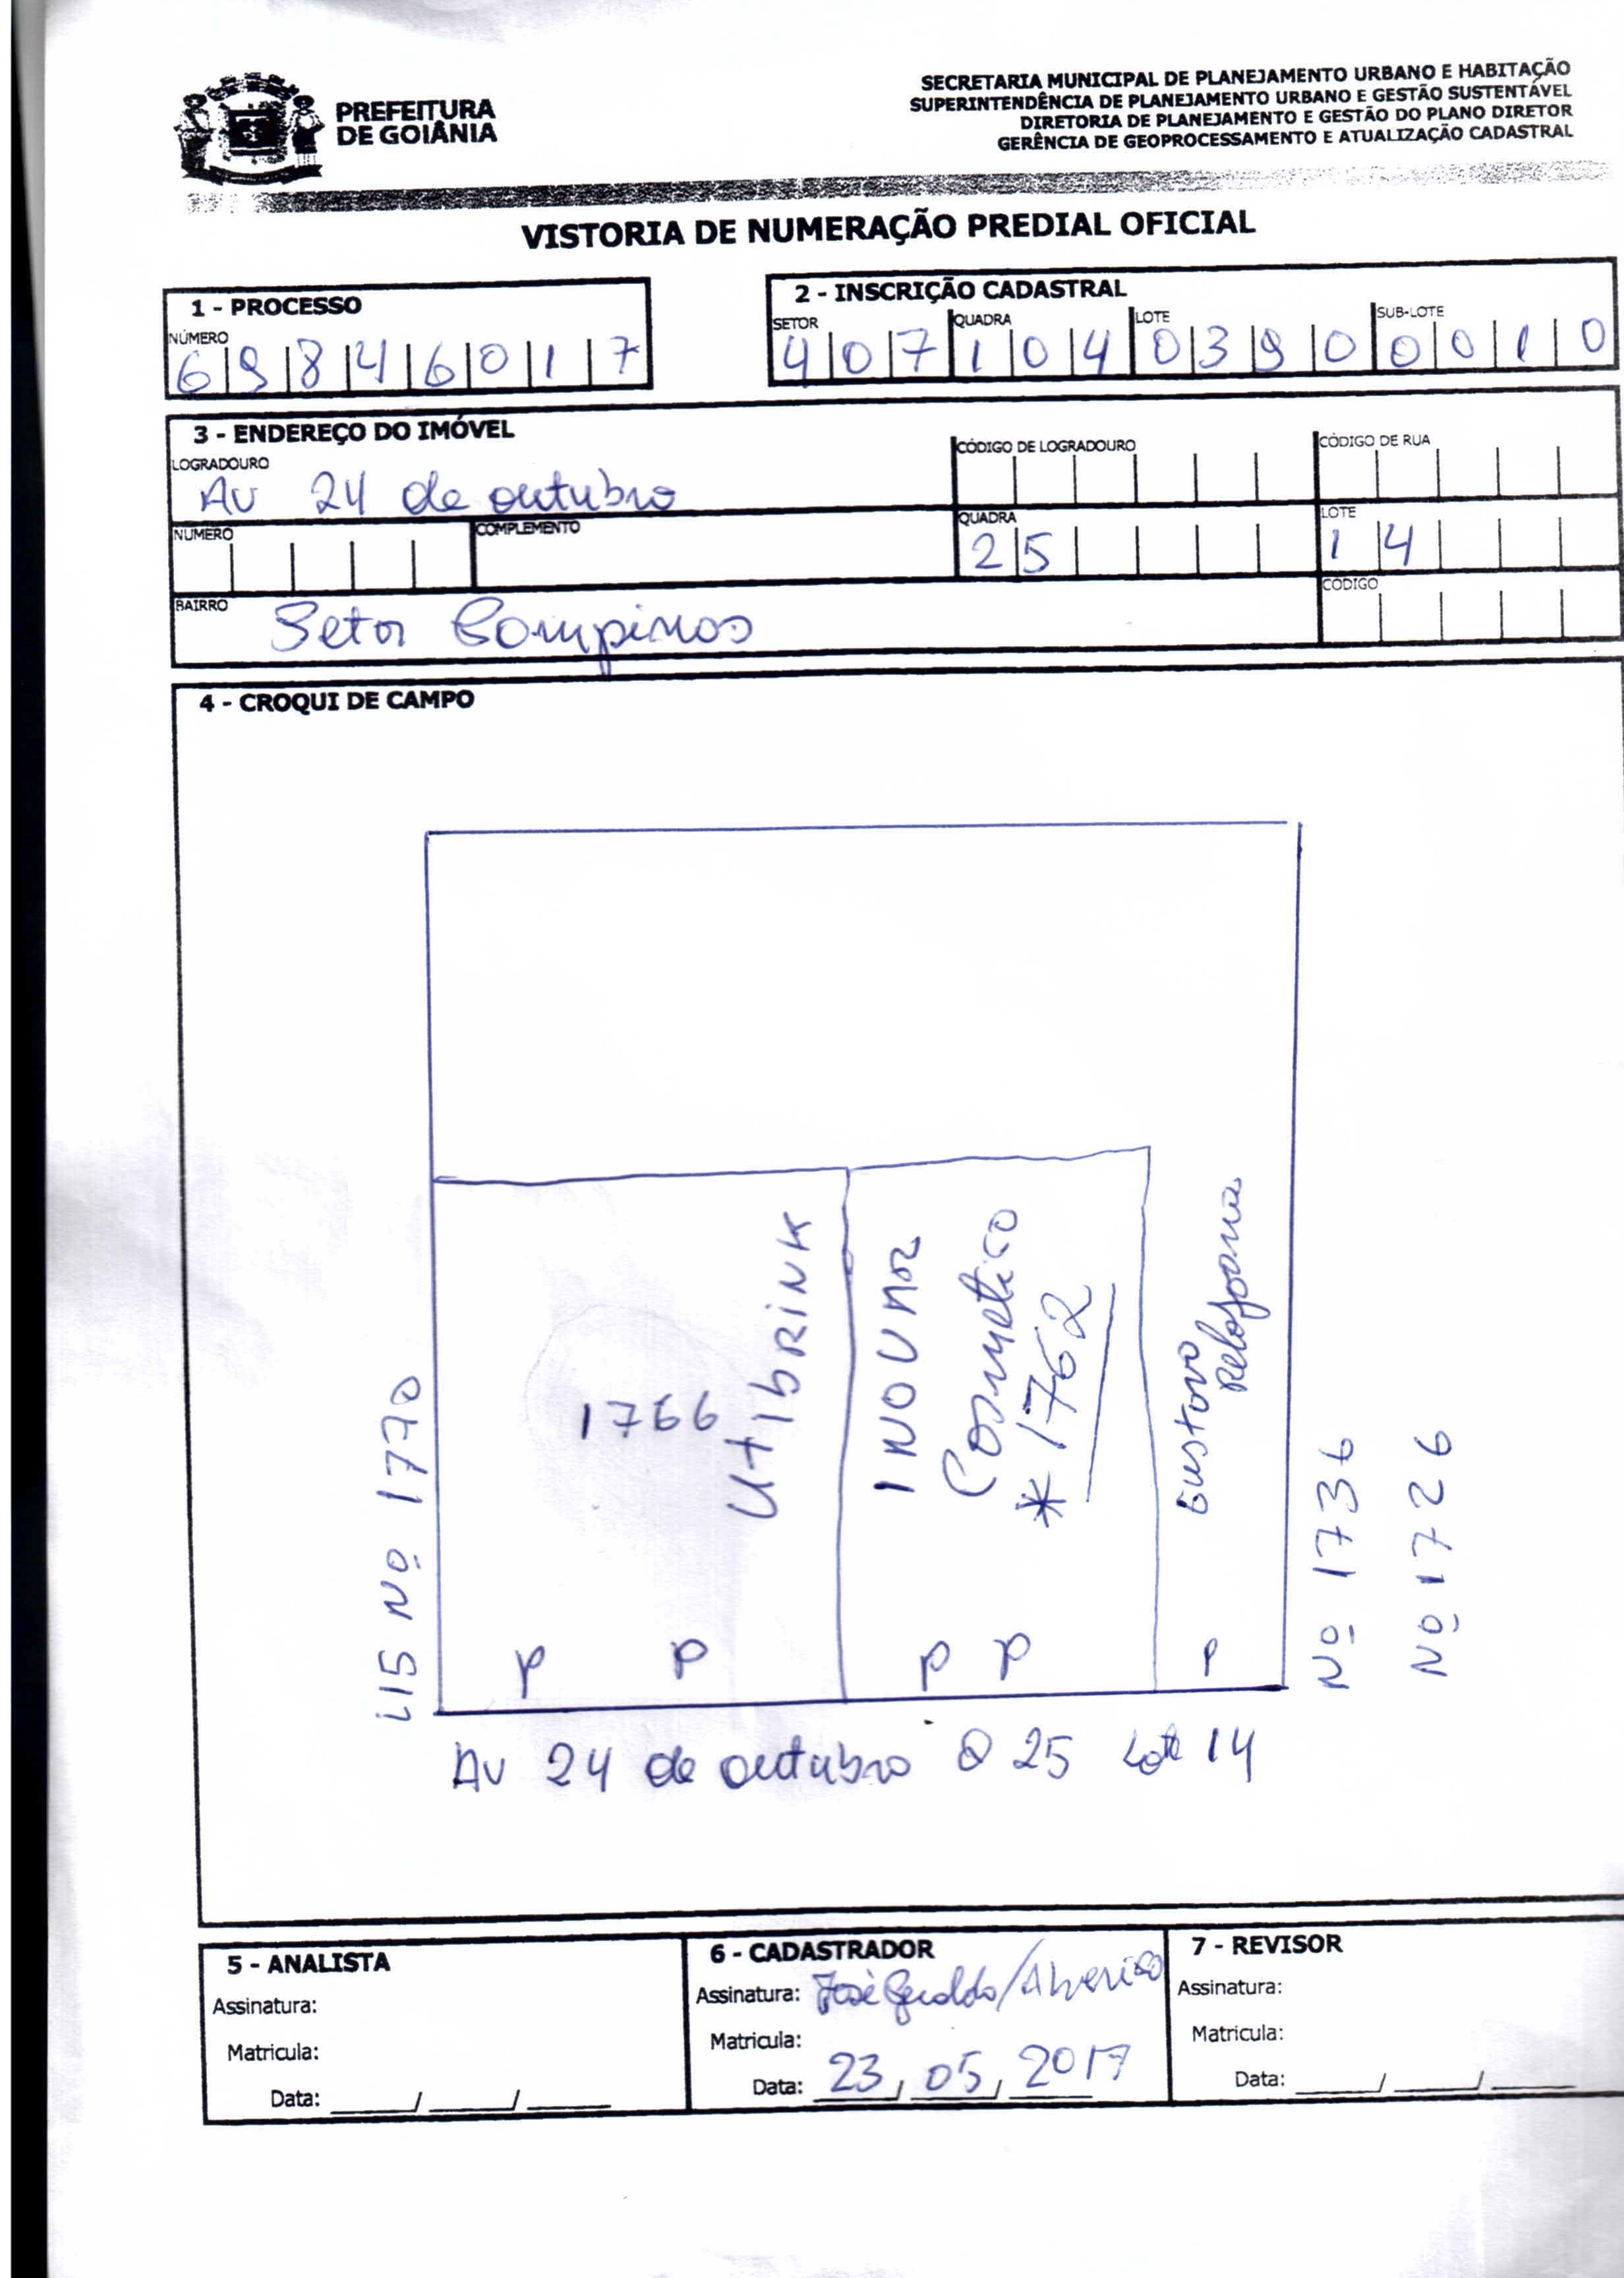 PREFEITURA
DE GOIÂNIA
SECRETARIA MUNICIPAL DE PLANEJAMENTO URBANO E HABITAÇÃO
SUPERINTENDÊNCIA DE PLANEJAMENTO URBANO E GESTÃO SUSTENTÁVEL
DIRETORIA DE PLANEJAMENTO E GESTÃO DO PLANO DIRETOR
GERÊNCIA DE GEOPROCESSAMENTO E ATUALIZAÇÃO CADASTRAL
VISTORIA DE NUMERAÇÃO PREDIAL OFICIAL
1 - PROCESSO
NÚMERO
6 9 8 4 6 0 1 7
2 - INSCRIÇÃO CADASTRAL
SETOR QUADRA LOTE SUB-LOTE
4 0 7 1 0 4 0 3 9 0 0 0 1 0
3 - ENDEREÇO DO IMÓVEL
LOGRADOURO CÓDIGO DE LOGRADOURO CÓDIGO DE RUA
Av 24 de outubro
NÚMERO COMPLEMENTO QUADRA LOTE
2 5 1 4
BAIRRO CÓDIGO
Setor Campinas
4 - CROQUI DE CAMPO
L15 Nº 1770
1766
UtibRINK
INOVAR
Cosmetico
* 1762
Gustavo
Relojoaria
Nº 1736
Nº 1726
P P P P P
Av 24 de outubro Q 25 Lote 14
5 - ANALISTA
Assinatura:
Matricula:
Data: ____/____/____
6 - CADASTRADOR
Assinatura: José Geraldo/
Matricula:
Data: 23, 05, 2017
7 - REVISOR
Assinatura:
Matricula:
Data: ____/____/____